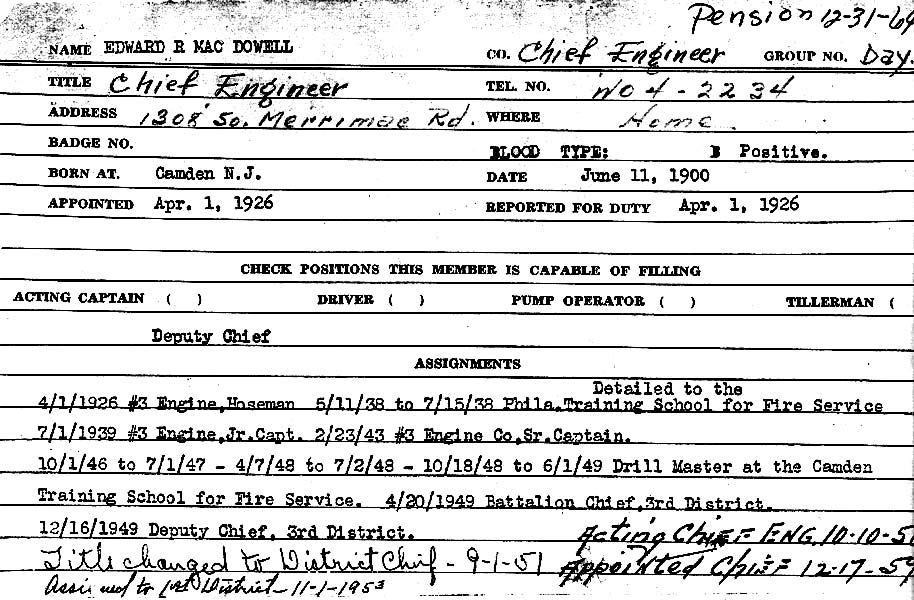 Pension 12-31-64
NAME EDWARD R MAC DOWELL CO. Chief Engineer GROUP NO. Day.
TITLE Chief Engineer TEL. NO. WO 4 - 2234
ADDRESS 1308 So. Merrimac Rd. WHERE Home.
BADGE NO. BLOOD TYPE: B Positive.
BORN AT. Camden N.J. DATE June 11, 1900
APPOINTED Apr. 1, 1926 REPORTED FOR DUTY Apr. 1, 1926
CHECK POSITIONS THIS MEMBER IS CAPABLE OF FILLING
ACTING CAPTAIN ( ) DRIVER ( ) PUMP OPERATOR ( ) TILLERMAN (
Deputy Chief
ASSIGNMENTS
Detailed to the
4/1/1926 #3 Engine,Hoseman 5/11/38 to 7/15/38 Phila.Training School for Fire Service
7/1/1939 #3 Engine,Jr.Capt. 2/23/43 #3 Engine Co,Sr.Captain.
10/1/46 to 7/1/47 - 4/7/48 to 7/2/48 - 10/18/48 to 6/1/49 Drill Master at the Camden
Training School for Fire Service. 4/20/1949 Battalion Chief,3rd District.
12/16/1949 Deputy Chief, 3rd District. Acting Chief ENG. 10-10-5
Title changed to District Chief - 9-1-51 Appointed Chief 12-17-59
Assigned to 1st District - 11-1-1953